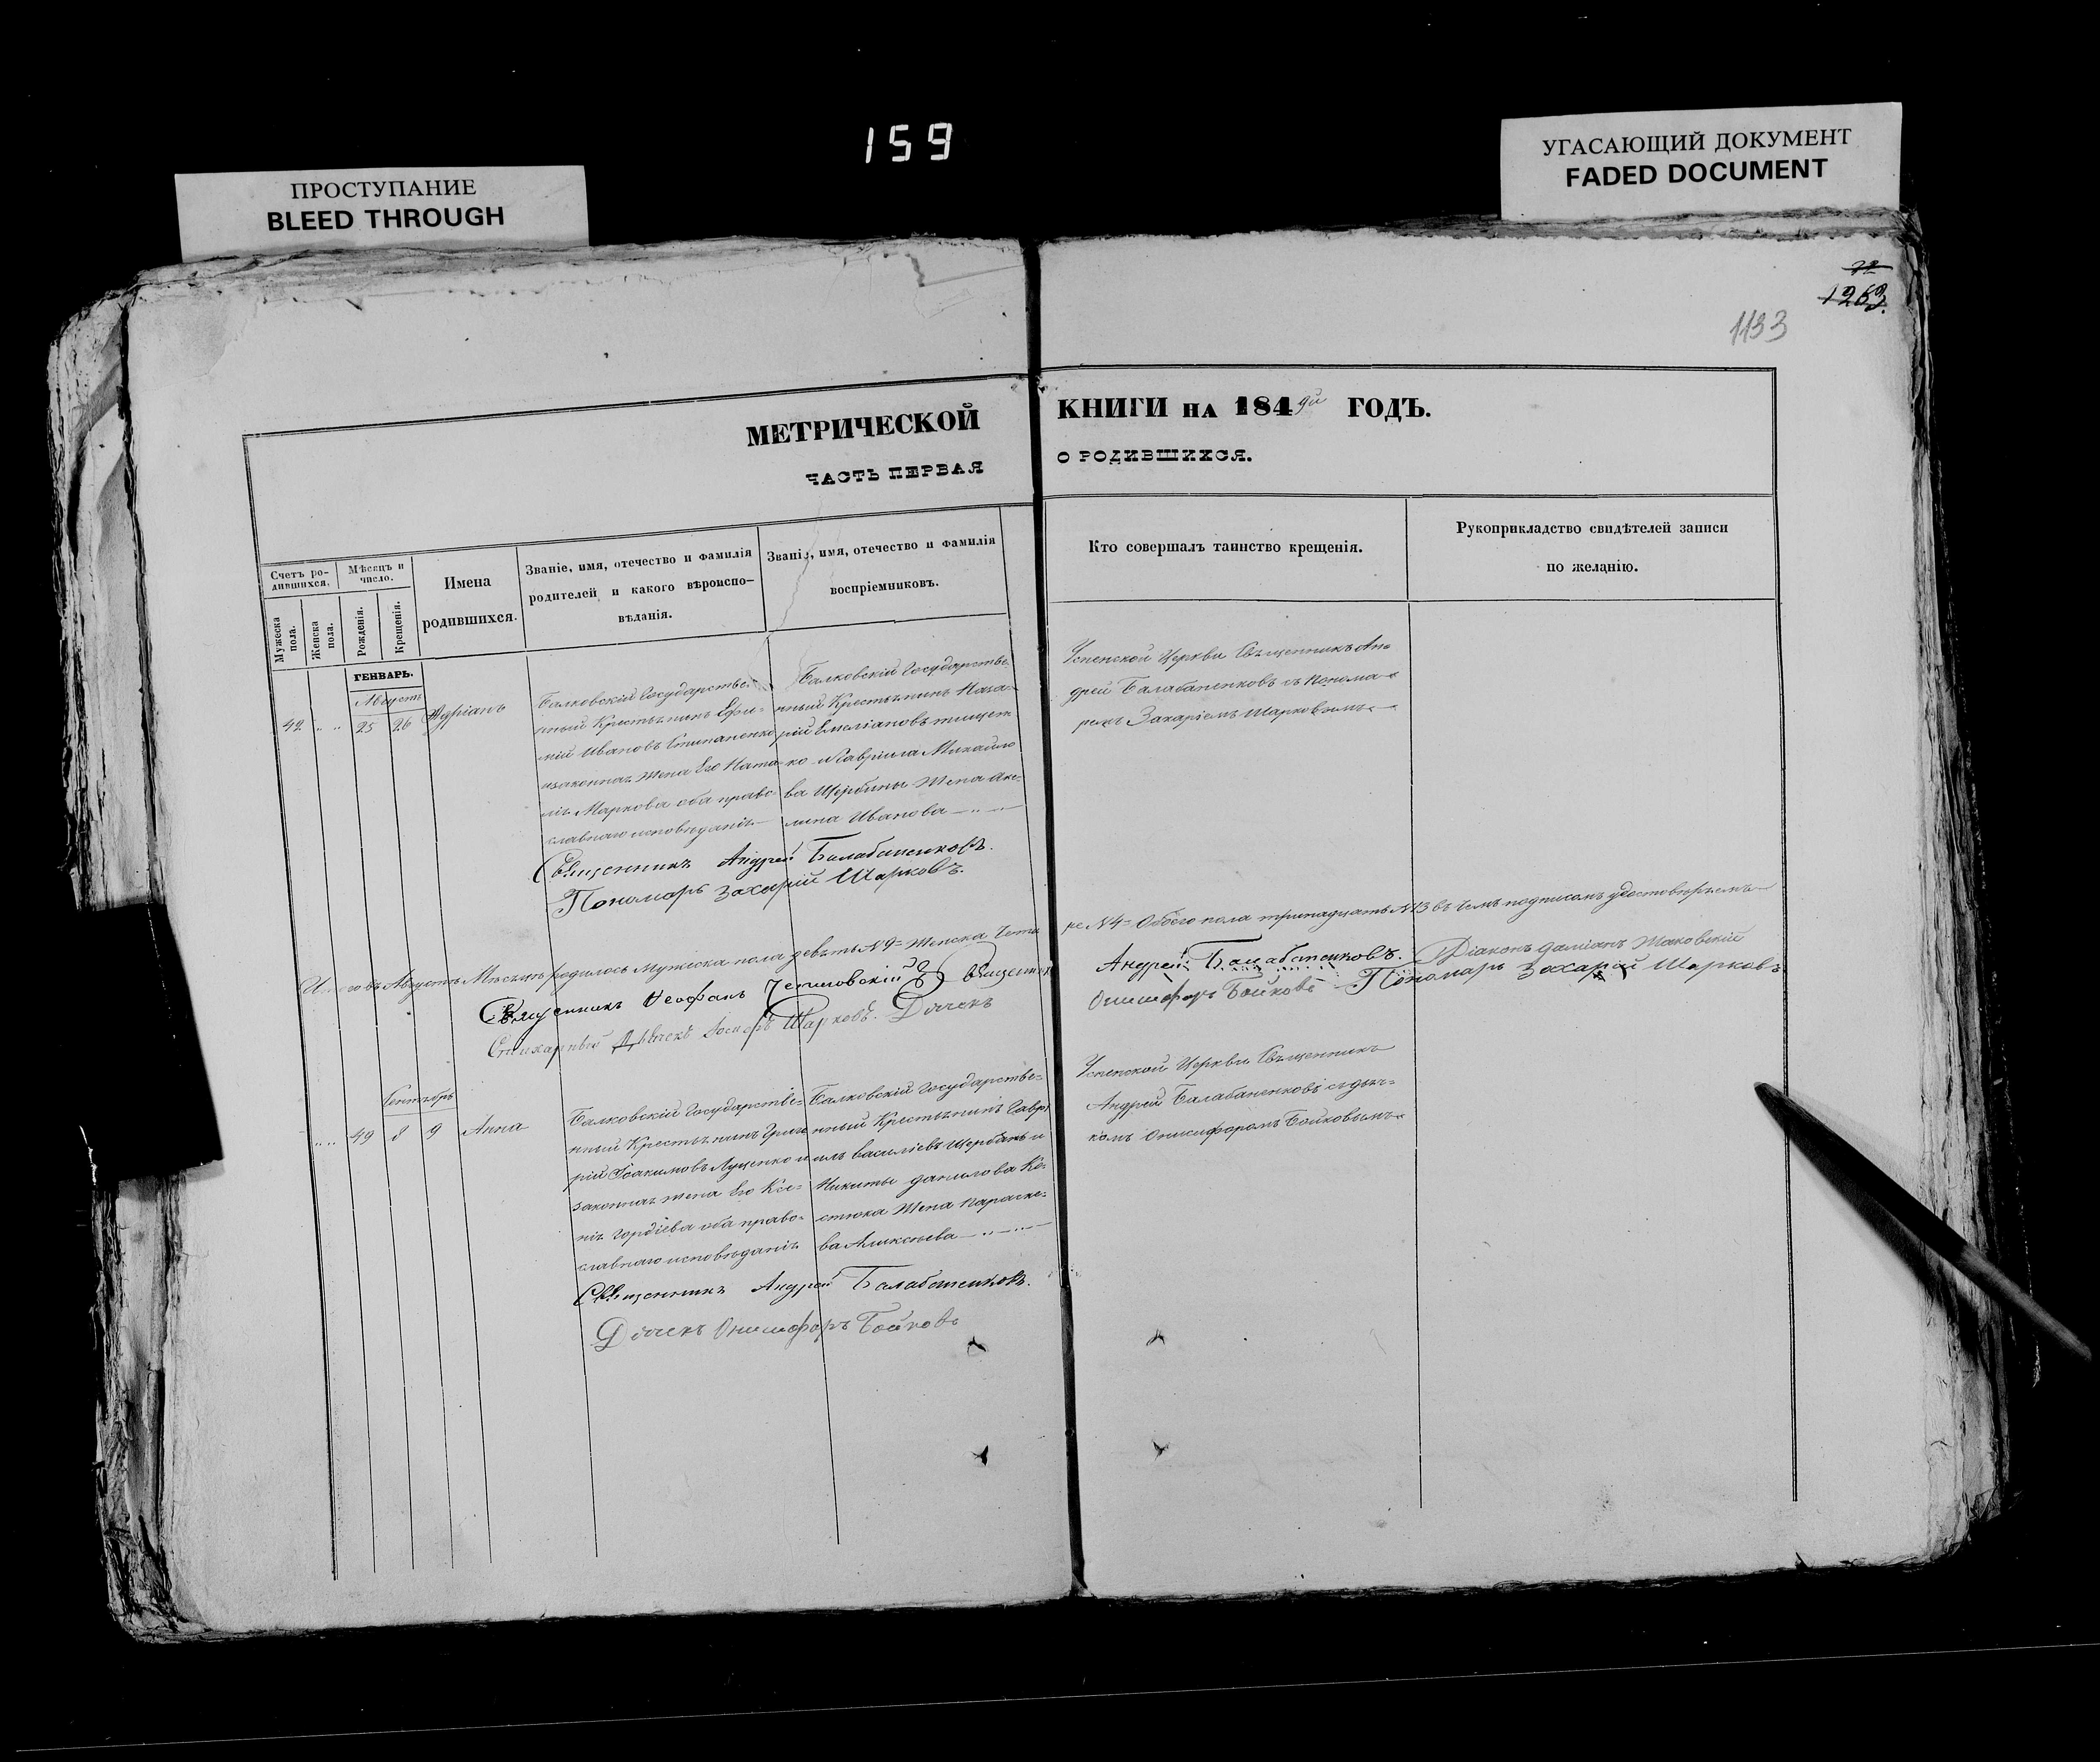 159
ПРОСТУПАНИЕ
BLEED THROUGH
УГАСАЮЩИЙ ДОКУМЕНТ
FADED DOCUMENT
72
1263.
1133
МЕТРИЧЕСКОЙ КНИГИ НА 1849й ГОДЪ.
ЧАСТЬ ПЕРВАЯ О РОДИВШИХСЯ.
Счетъ родившихся.
Мужеска пола.
Женска пола.
Мѣсяцъ и число.
Рожденія.
Крещенія.
Имена родившихся.
Званіе, имя, отечество и фамилія родителей и какого вѣроисповѣданія.
Званіе, имя, отечество и фамилія воспріемниковъ.
Кто совершалъ таинство крещенія.
Рукоприкладство свидѣтелей записи по желанію.
ГЕНВАРЬ.
Августъ
42 „ „ 25 26 Адріанъ
Балковскій Государстве-
нный Крестьянинъ Ефи-
мій Ивановъ Степаненко
изаконная жена Его Ната-
лія Маркова оба право-
славнаго исповѣданія
Балковскій Государстве-
нный Крестьянинъ Наза-
рій Емеліановъ
ко и Гавріила Михайло
ва Щербины Жена Аку-
лина Иванова
Успенской Церкви Священникъ Ан-
дрей Балабаненковъ съ понома-
ремъ Захаріемъ Шарковымъ
Священникъ Андрей Балабаненковъ.
Пономарь Захарій Шарковъ.
Итого въ Августѣ Мѣсяцѣ родилось мужеска пола девять №9= Женска Четы
ре №4= Обоего пола тринадцать №13 въ чемъ подписомъ удостовѣряемъ
Священникъ Ѳеофанъ Священникъ
Андрей Балабаненковъ. Діаконъ Даміанъ Маковскій
Стихарный Дьячекъ Іосифъ Шарковъ. Дячекъ
Онисифоръ Бойковъ Пономарь Захарій Шарковъ
Сентябрь
„ „ 49 8 9 Анна
Балковскій Государстве-
нный Крестьянинъ Григо
рій Іоакимовъ Луценко и
законная жена Его Ксе-
нія Гордіева оба право-
славнаго исповѣданія
Балковскій Государстве-
нный Крестьянинъ Гаврі
илъ Василіевъ Щербань и
Никиты Данилова Ко-
стюка Жена Параске-
ва Алексѣева
Успенской Церкви Священникъ
Андрей Балабаненковъ съ дьяч-
комъ Онисифоромъ Бойковымъ
Священникъ Андрей Балабаненковъ.
Дячекъ Онисифоръ Бойковъ